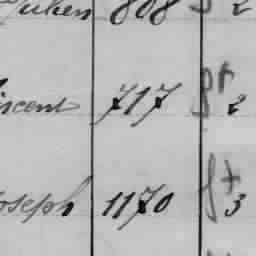 Julien 808 2
incent 717 2
oseph 1170 3